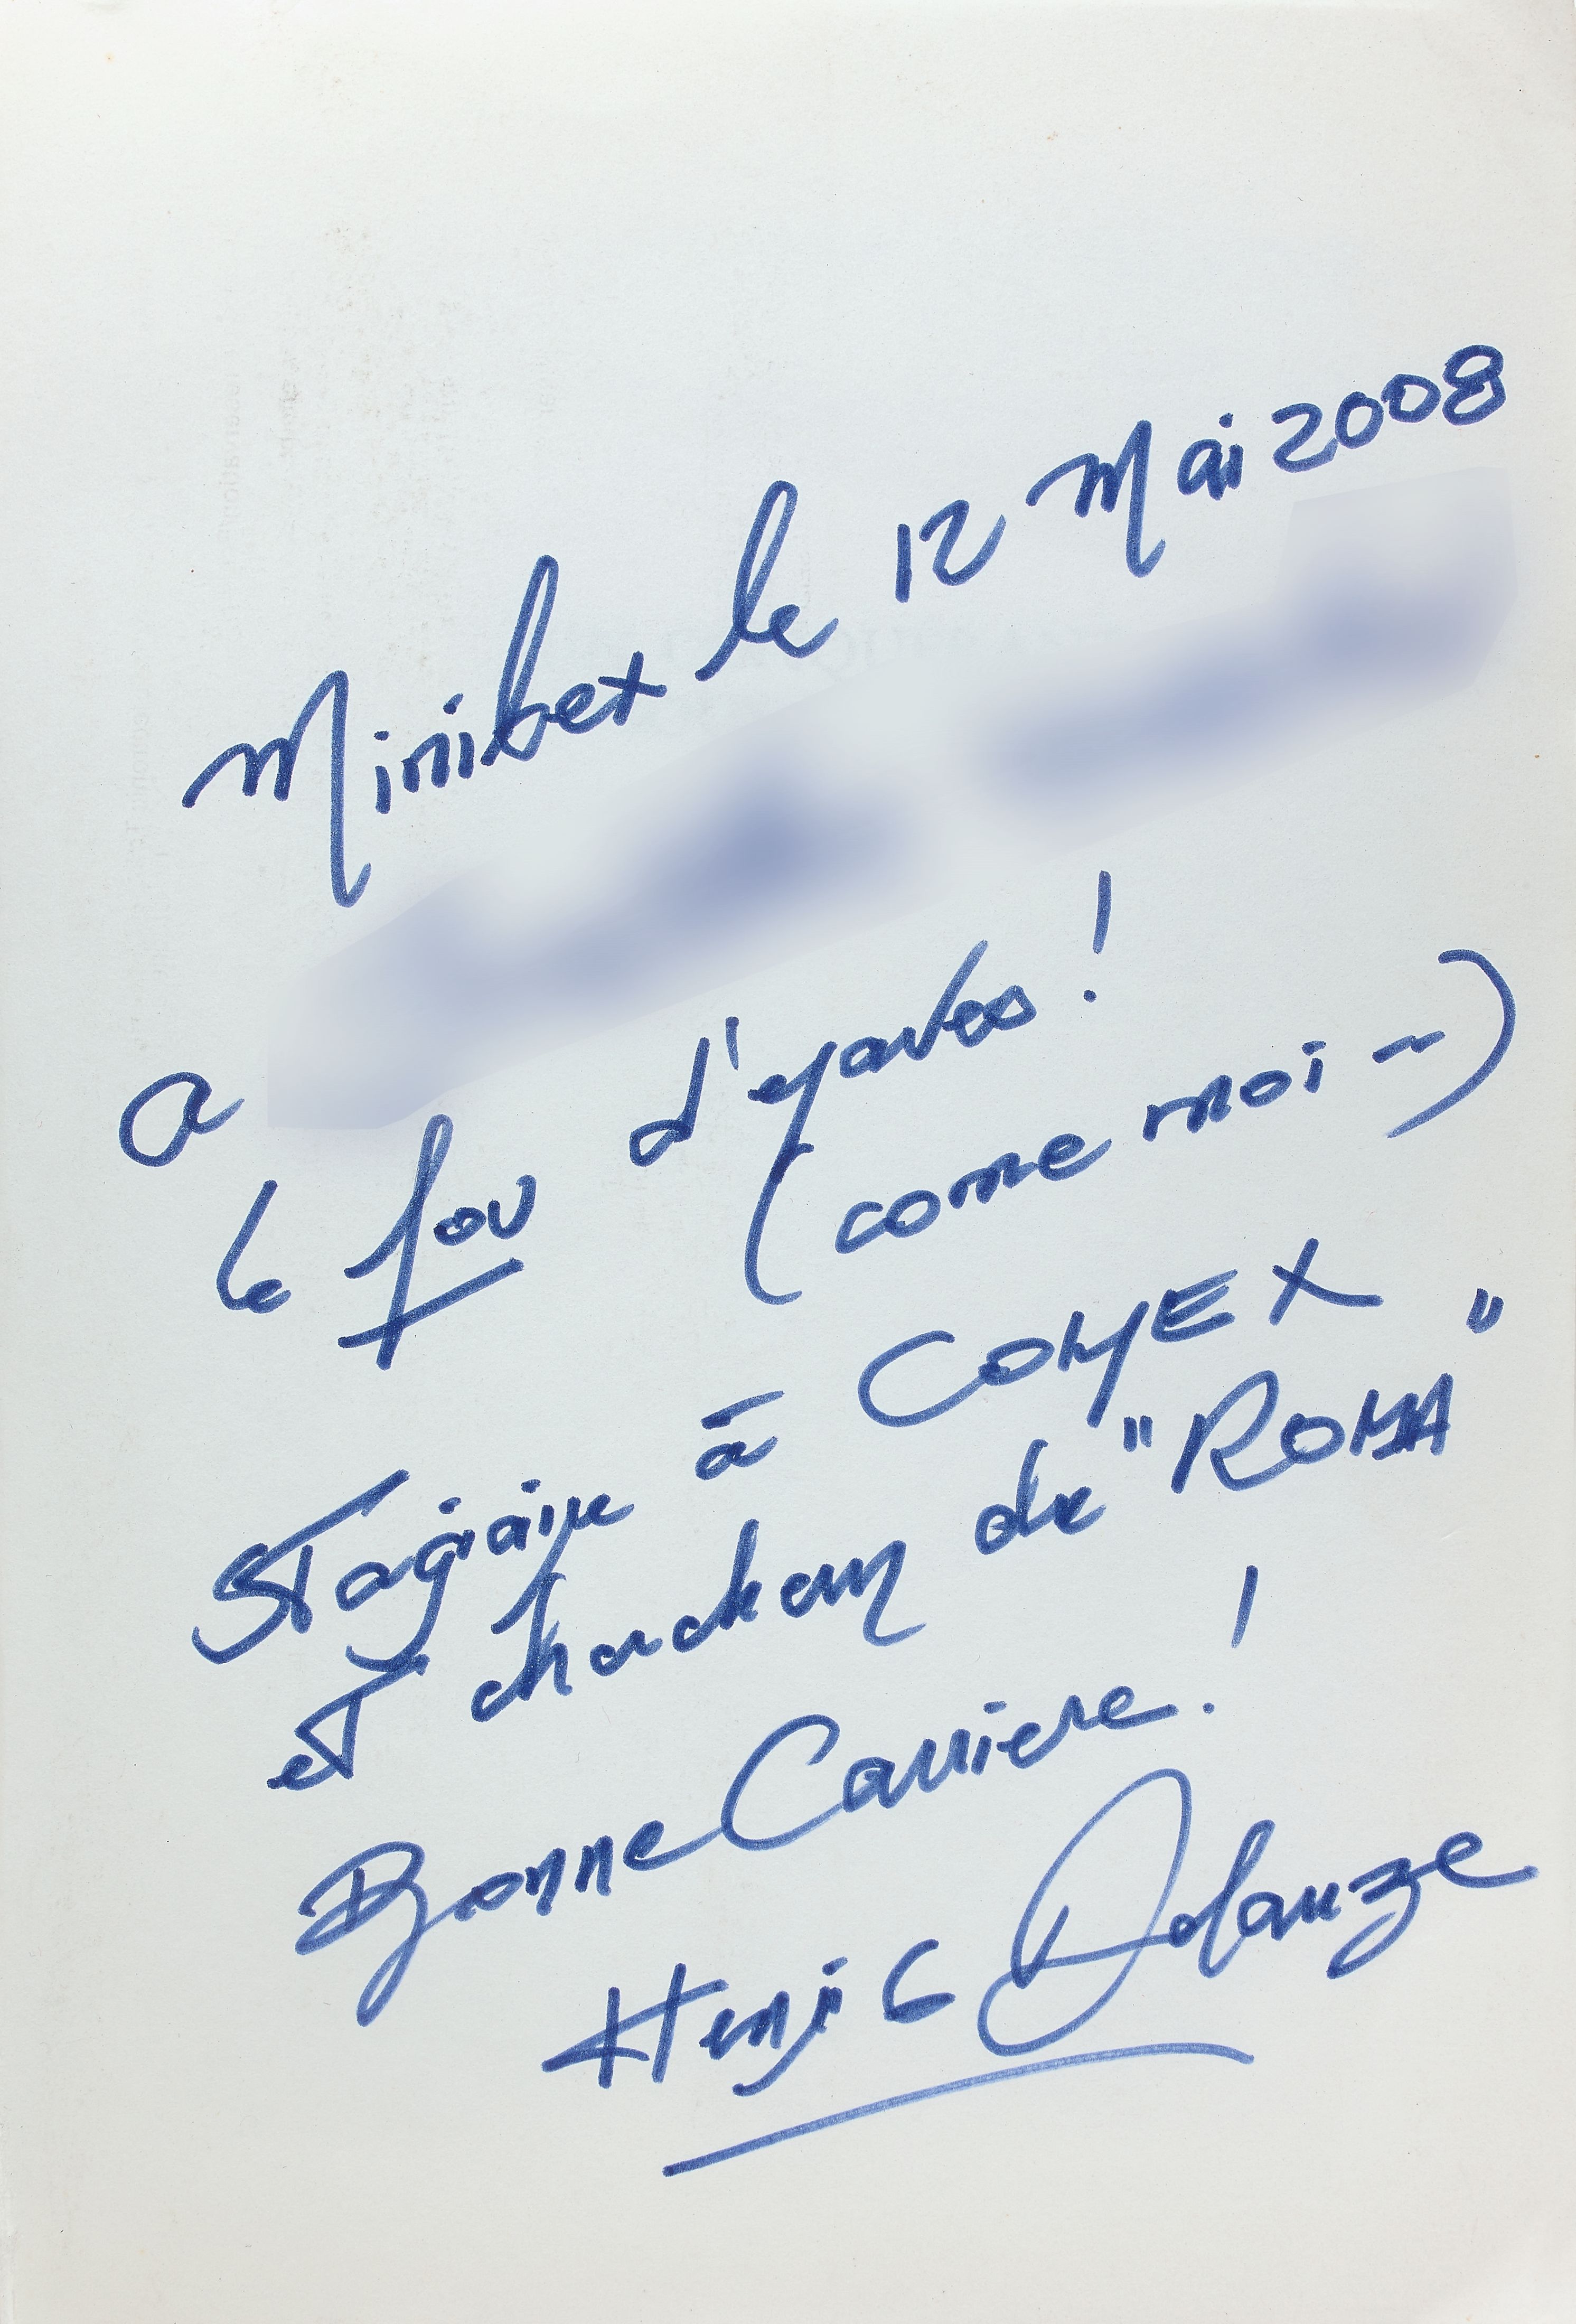 Minibex le 12 Mai 2008
a
le fou d'epaves !
(come moi --)
Stagiaire à COMEX
et chercheur du "ROMA"
Bonne Carriere !
Henri G Delauze